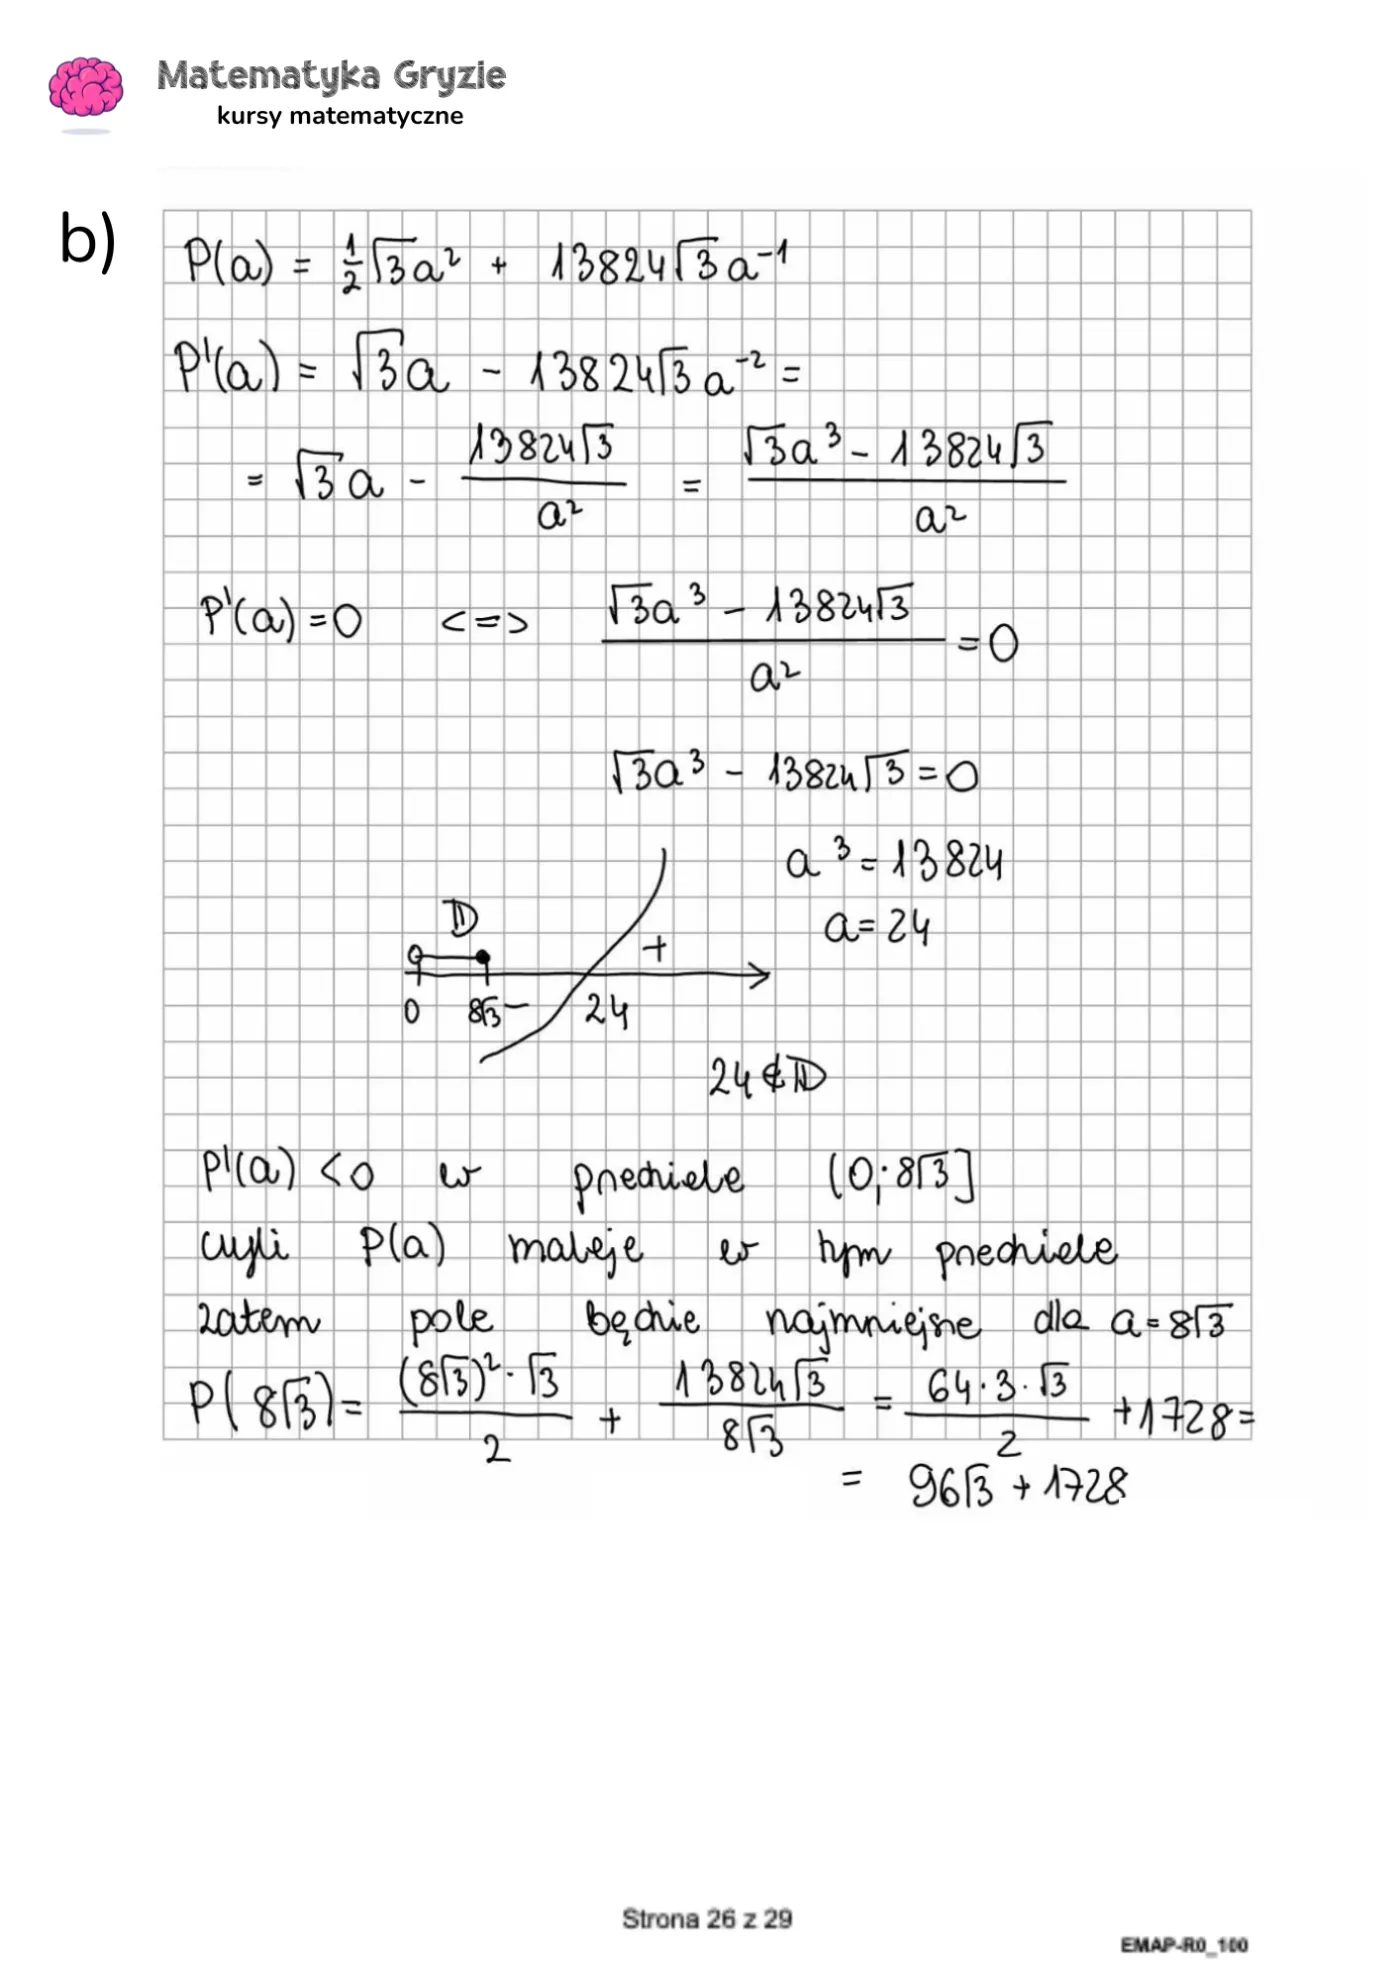 Matematyka Gryzie
kursy matematyczne
b)
P(a) = 1/2 √3a² + 13824√3 a⁻¹
P'(a) = √3a - 13824√3 a⁻² =
= √3a - 13824√3/a² = (√3a³ - 13824√3)/a²
P'(a) = 0 <=> (√3a³ - 13824√3)/a² = 0
√3a³ - 13824√3 = 0
a³ = 13824
a = 24
D
+
0 8√3 - 24
24 ∉ D
P'(a) < 0 w przedziele (0; 8√3]
czyli P(a) maleje w tym przedziele
zatem pole będzie najmniejsze dla a = 8√3
P(8√3) = (8√3)²·√3/2 + 13824√3/8√3 = 64·3·√3/2 + 1728 =
= 96√3 + 1728
Strona 26 z 29
EMAP-R0_100